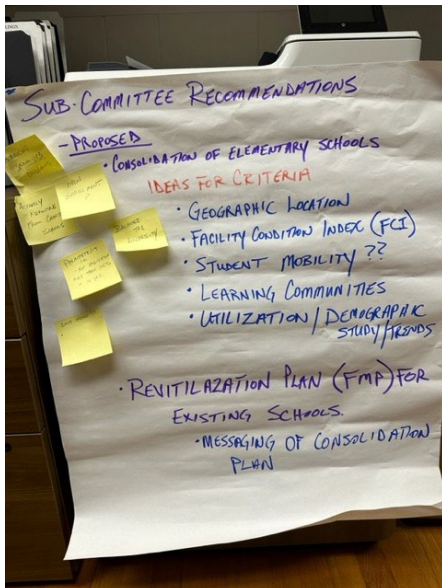 SUB-COMMITTEE RECOMMENDATIONS
- PROPOSED
• CONSOLIDATION OF ELEMENTARY SCHOOLS
IDEAS FOR CRITERIA
• GEOGRAPHIC LOCATION
• FACILITY CONDITION INDEX (FCI)
• STUDENT MOBILITY ??
• LEARNING COMMUNITIES
• UTILIZATION/DEMOGRAPHIC
STUDY/TRENDS
• REVITILAZATION PLAN (FMP) FOR
EXISTING SCHOOLS.
• MESSAGING OF CONSOLIDATION
PLAN